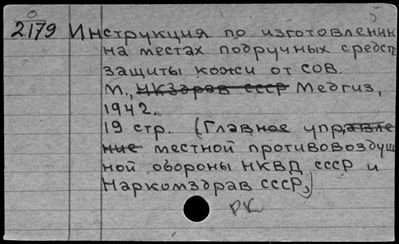 2179 Инструкция по изготовлению
на местах подручных средств
защиты кожи от СОВ.
М., НКЗдрав СССР Медгиз,
1942.
19 стр. (Главное управле
ние местной противовоздуш
ной обороны НКВД СССР и
Наркомздрав СССР)
РК